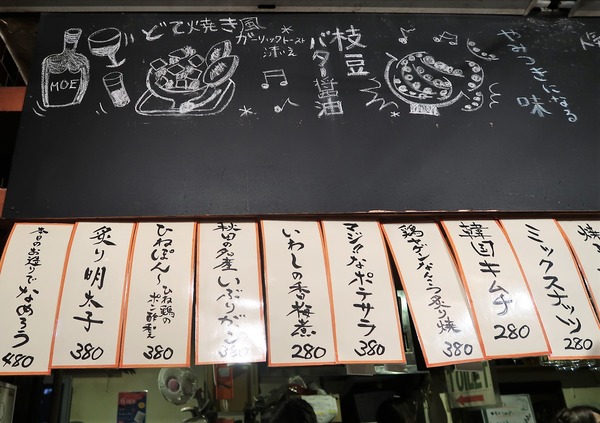 どて焼き風
ガーリックトースト
添え
MOE
枝豆
バター醤油
やみつきになる
味
本日のお造りで
なめろう
480
炙り明太子
380
ひねぽん〜
ひね鶏の
ポン酢和え
380
秋田の名産
いぶりがっこ
380
いわしの香梅煮
280
マジ!!なポテサラ
380
鶏ヤゲンなんこつ炙り焼
380
韓国キムチ
280
ミックスナッツ
280
焼